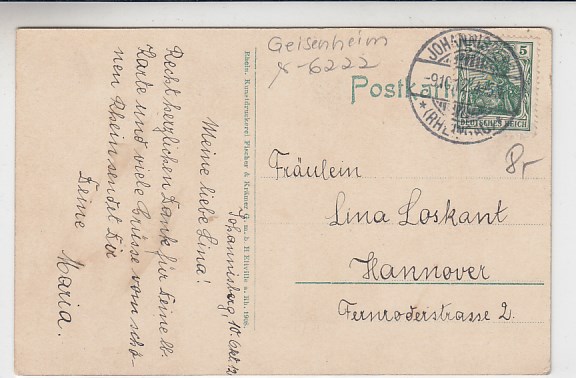 Geisenheim
x-6222
Postkarte
JOHANNIS
(RHEINGAU)
5
DEUTSCHES REICH
8,-
Fräulein
Lina Loskant
Hannover
Fernroderstrasse 2.
Rhein. Kunstdruckerei Fischer & Krämer G. m. b. H Eltville a. Rh. 1908.
Johannisberg, 10. Okt. 12
Meine liebe Lina!
Recht herzlichen Dank für Deine lb.
Karte und viele Grüsse vom schö-
nen Rhein sendet Dir
Deine
Maria.